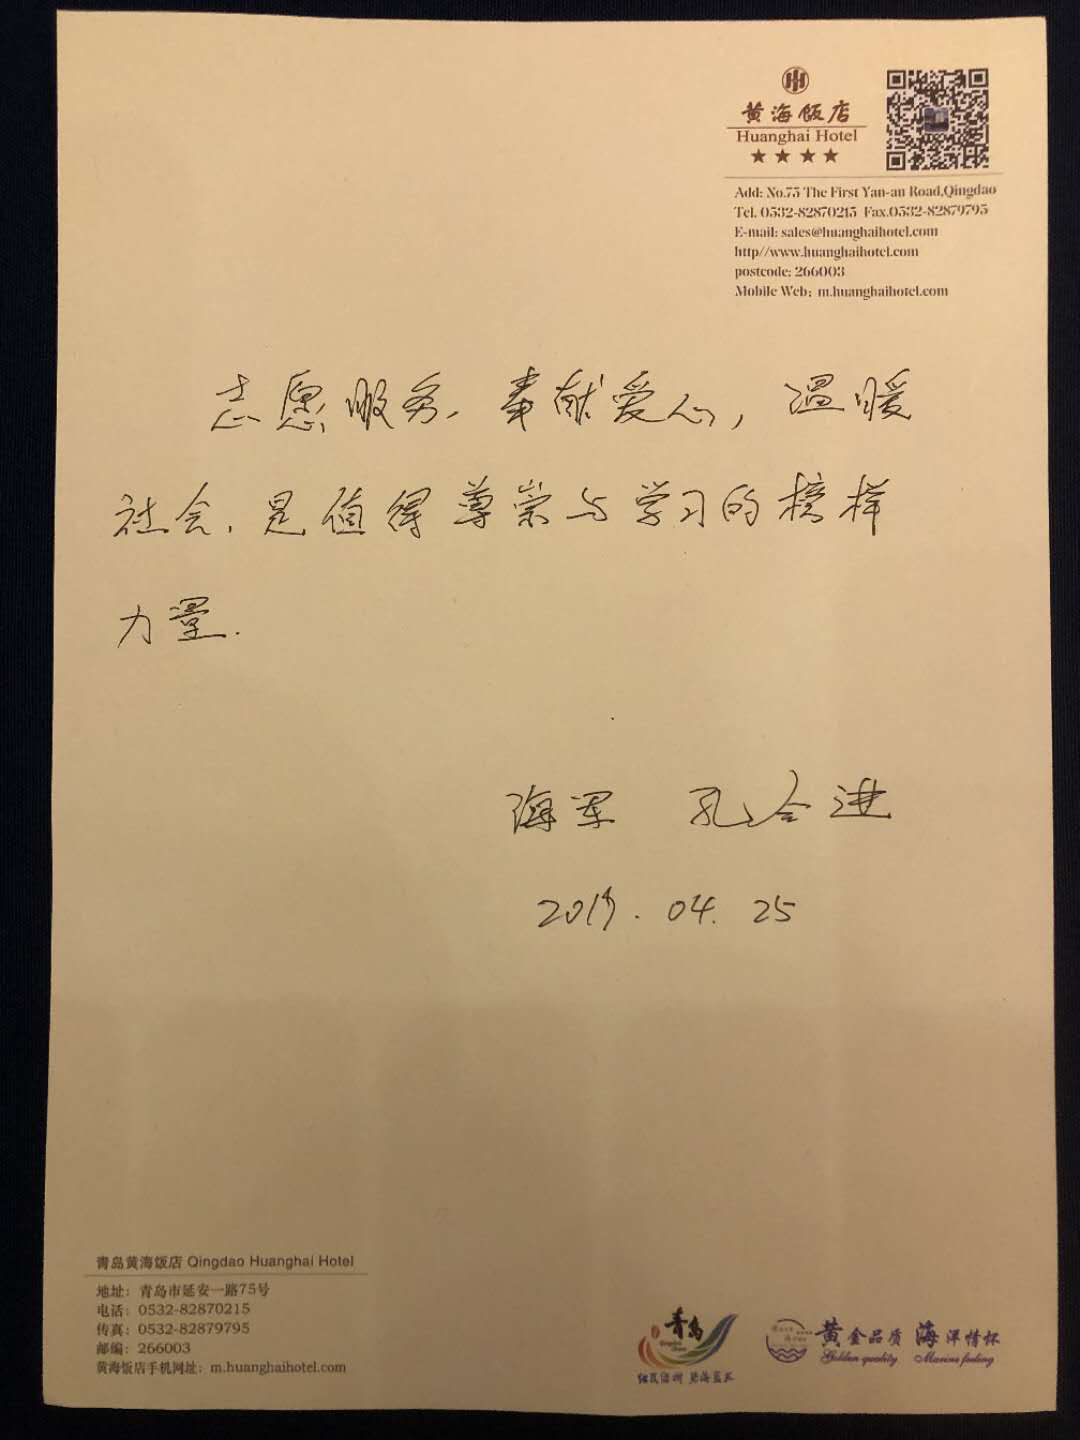 黄海饭店
Huanghai Hotel
★★★★
Add: No.75 The First Yan-an Road,Qingdao
Tel. 0532-82870215 Fax.0532-82879795
E-mail: sales@huanghaihotel.com
http//www.huanghaihotel.com
postcode: 266003
Mobile Web: m.huanghaihotel.com
志愿服务、奉献爱心,温暖
社会、是值得尊崇与学习的榜样
力量.
海军 孔令进
2019.04.25
青岛黄海饭店 Qingdao Huanghai Hotel
地址：青岛市延安一路75号
电话：0532-82870215
传真：0532-82879795
邮编：266003
黄海饭店手机网址：m.huanghaihotel.com
青岛
Qingdao
China
红瓦绿树 碧海蓝天
黄金品质 海洋情怀
Golden quality Marine feeling